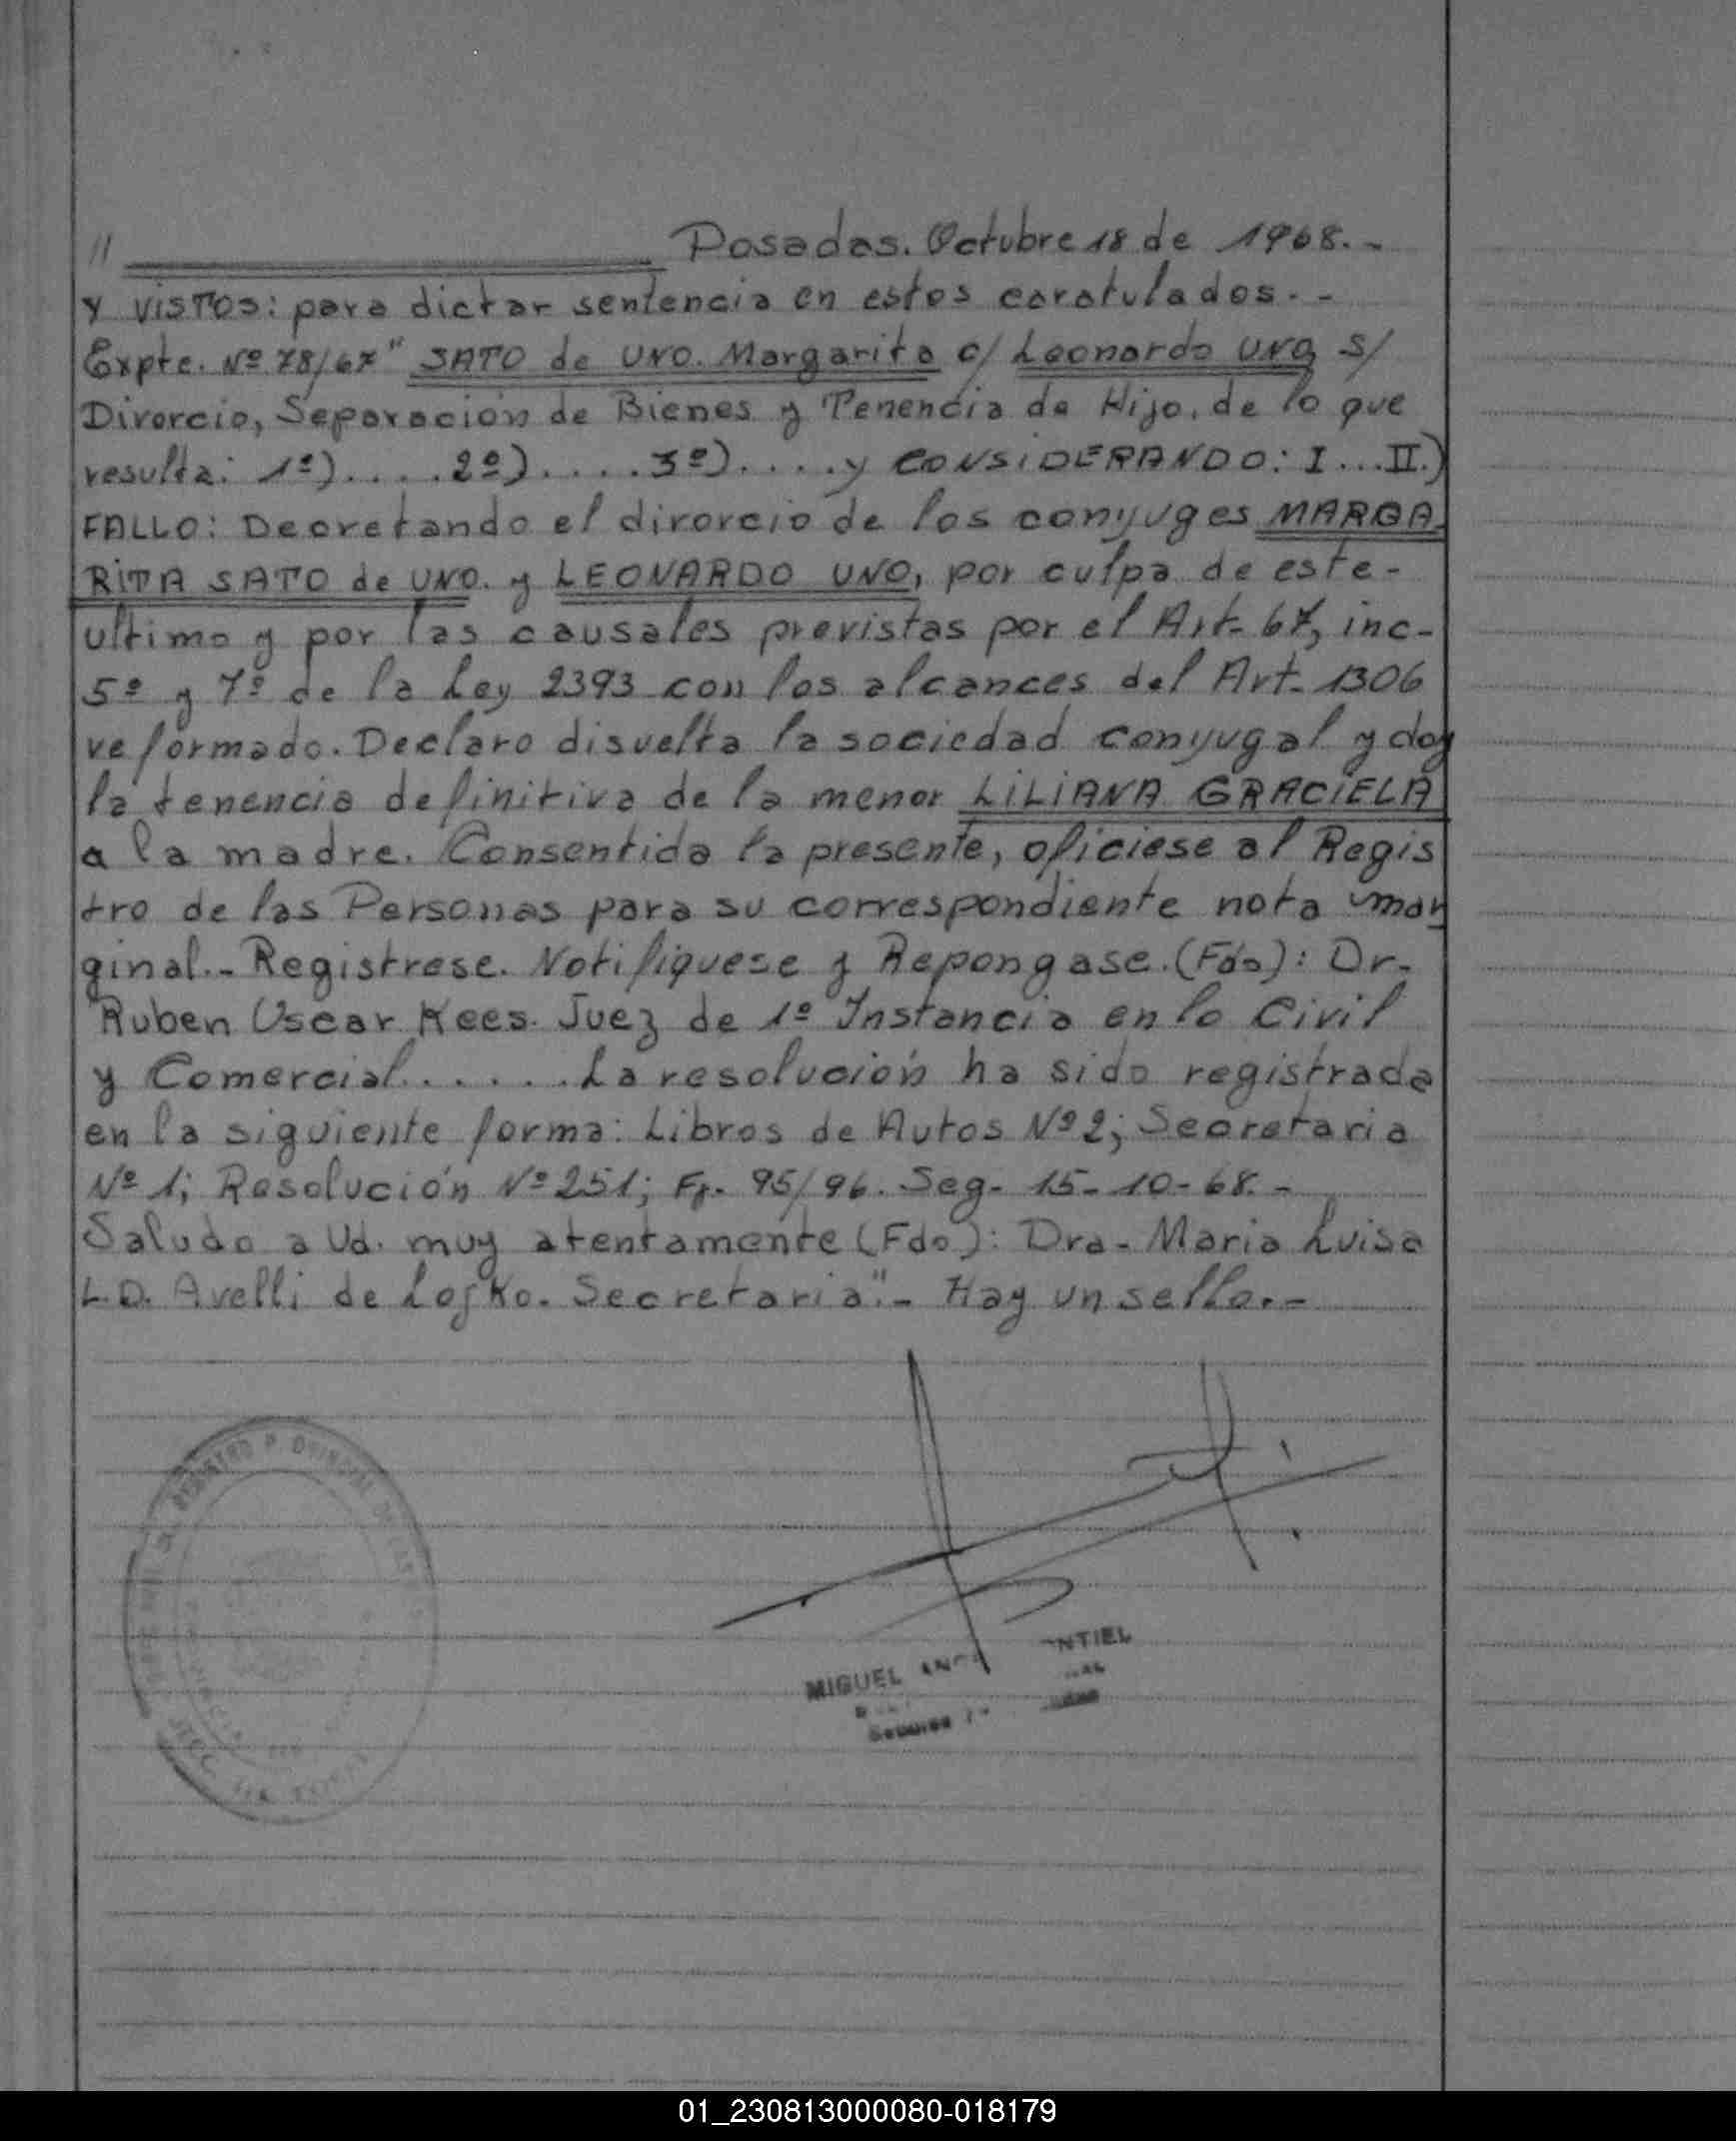 // Posadas. Octubre 18 de 1968.-
Y VISTOS: para dictar sentencia en estos caratulados.-
Expte. Nº 78/67" SATO de UNO. Margarita c/ Leonardo UNO, S/
Divorcio, Separación de Bienes y Tenencia de Hijo, de lo que
resulta: 1º).....2º).....3º).....y CONSIDERANDO: I...II.)
FALLO: Decretando el divorcio de los conyuges MARGA-
RITA SATO de UNO. y LEONARDO UNO, por culpa de este-
ultimo y por las causales previstas por el Art- 67, inc-
5º y 7º de la Ley 2393 con los alcances del Art- 1306
reformado. Declaro disuelta la sociedad conyugal y doy
la tenencia definitiva de la menor LILIANA GRACIELA
a la madre. Consentida la presente, oficiese al Regis
tro de las Personas para su correspondiente nota mar
ginal.- Registrese. Notifiquese y Repongase. (Fdo): Dr-
Ruben Oscar Kees. Juez de 1º Instancia en lo Civil
y Comercial......La resolución ha sido registrada
en la siguiente forma: Libros de Autos Nº 2; Secretaria
Nº 1; Resolución Nº 251; Fs. 95/96. Seg- 15-10-68.-
Saludo a Ud. muy atentamente (Fdo): Dra- Maria Luisa
L.D. Avelli de Losko. Secretaria".- Hay un sello.-
MIGUEL
01_230813000080-018179